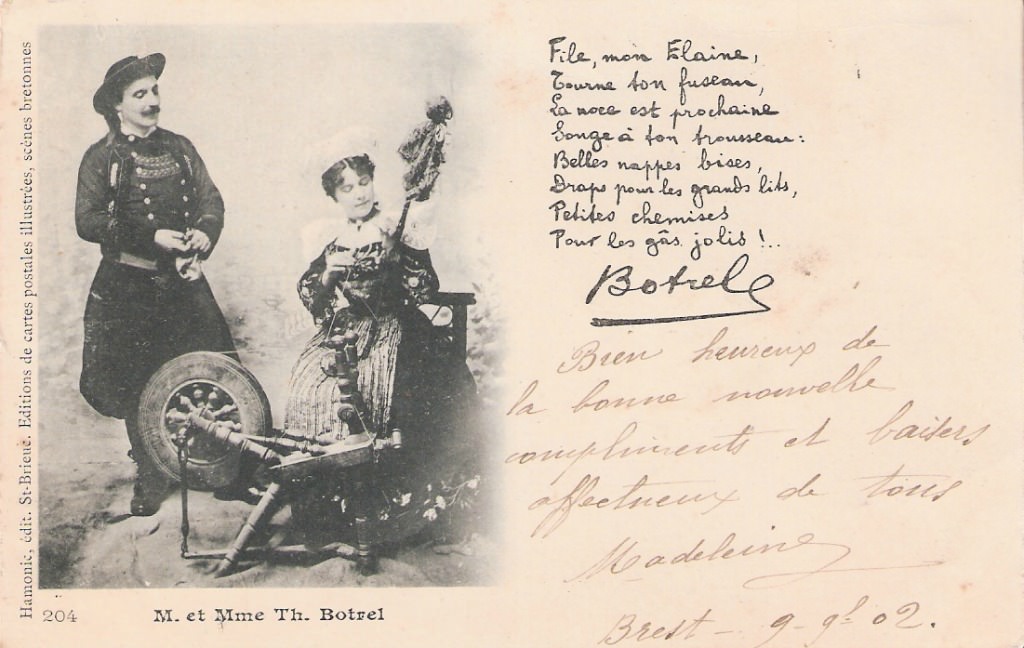 Hamonic, édit. St-Brieuc. Editions de cartes postales illustrées, scènes bretonnes
File, mon Elaine,
Tourne ton fuseau,
La noce est prochaine
Songe à ton trousseau :
Belles nappes bises,
Draps pour les grands lits,
Petites chemises
Pour les gâs jolis !..
Botrel
Bien heureux de
la bonne nouvelle
compliments et baisers
affectueux de tous
Madeleine
Brest - 9 - 02.
204
M. et Mme Th. Botrel